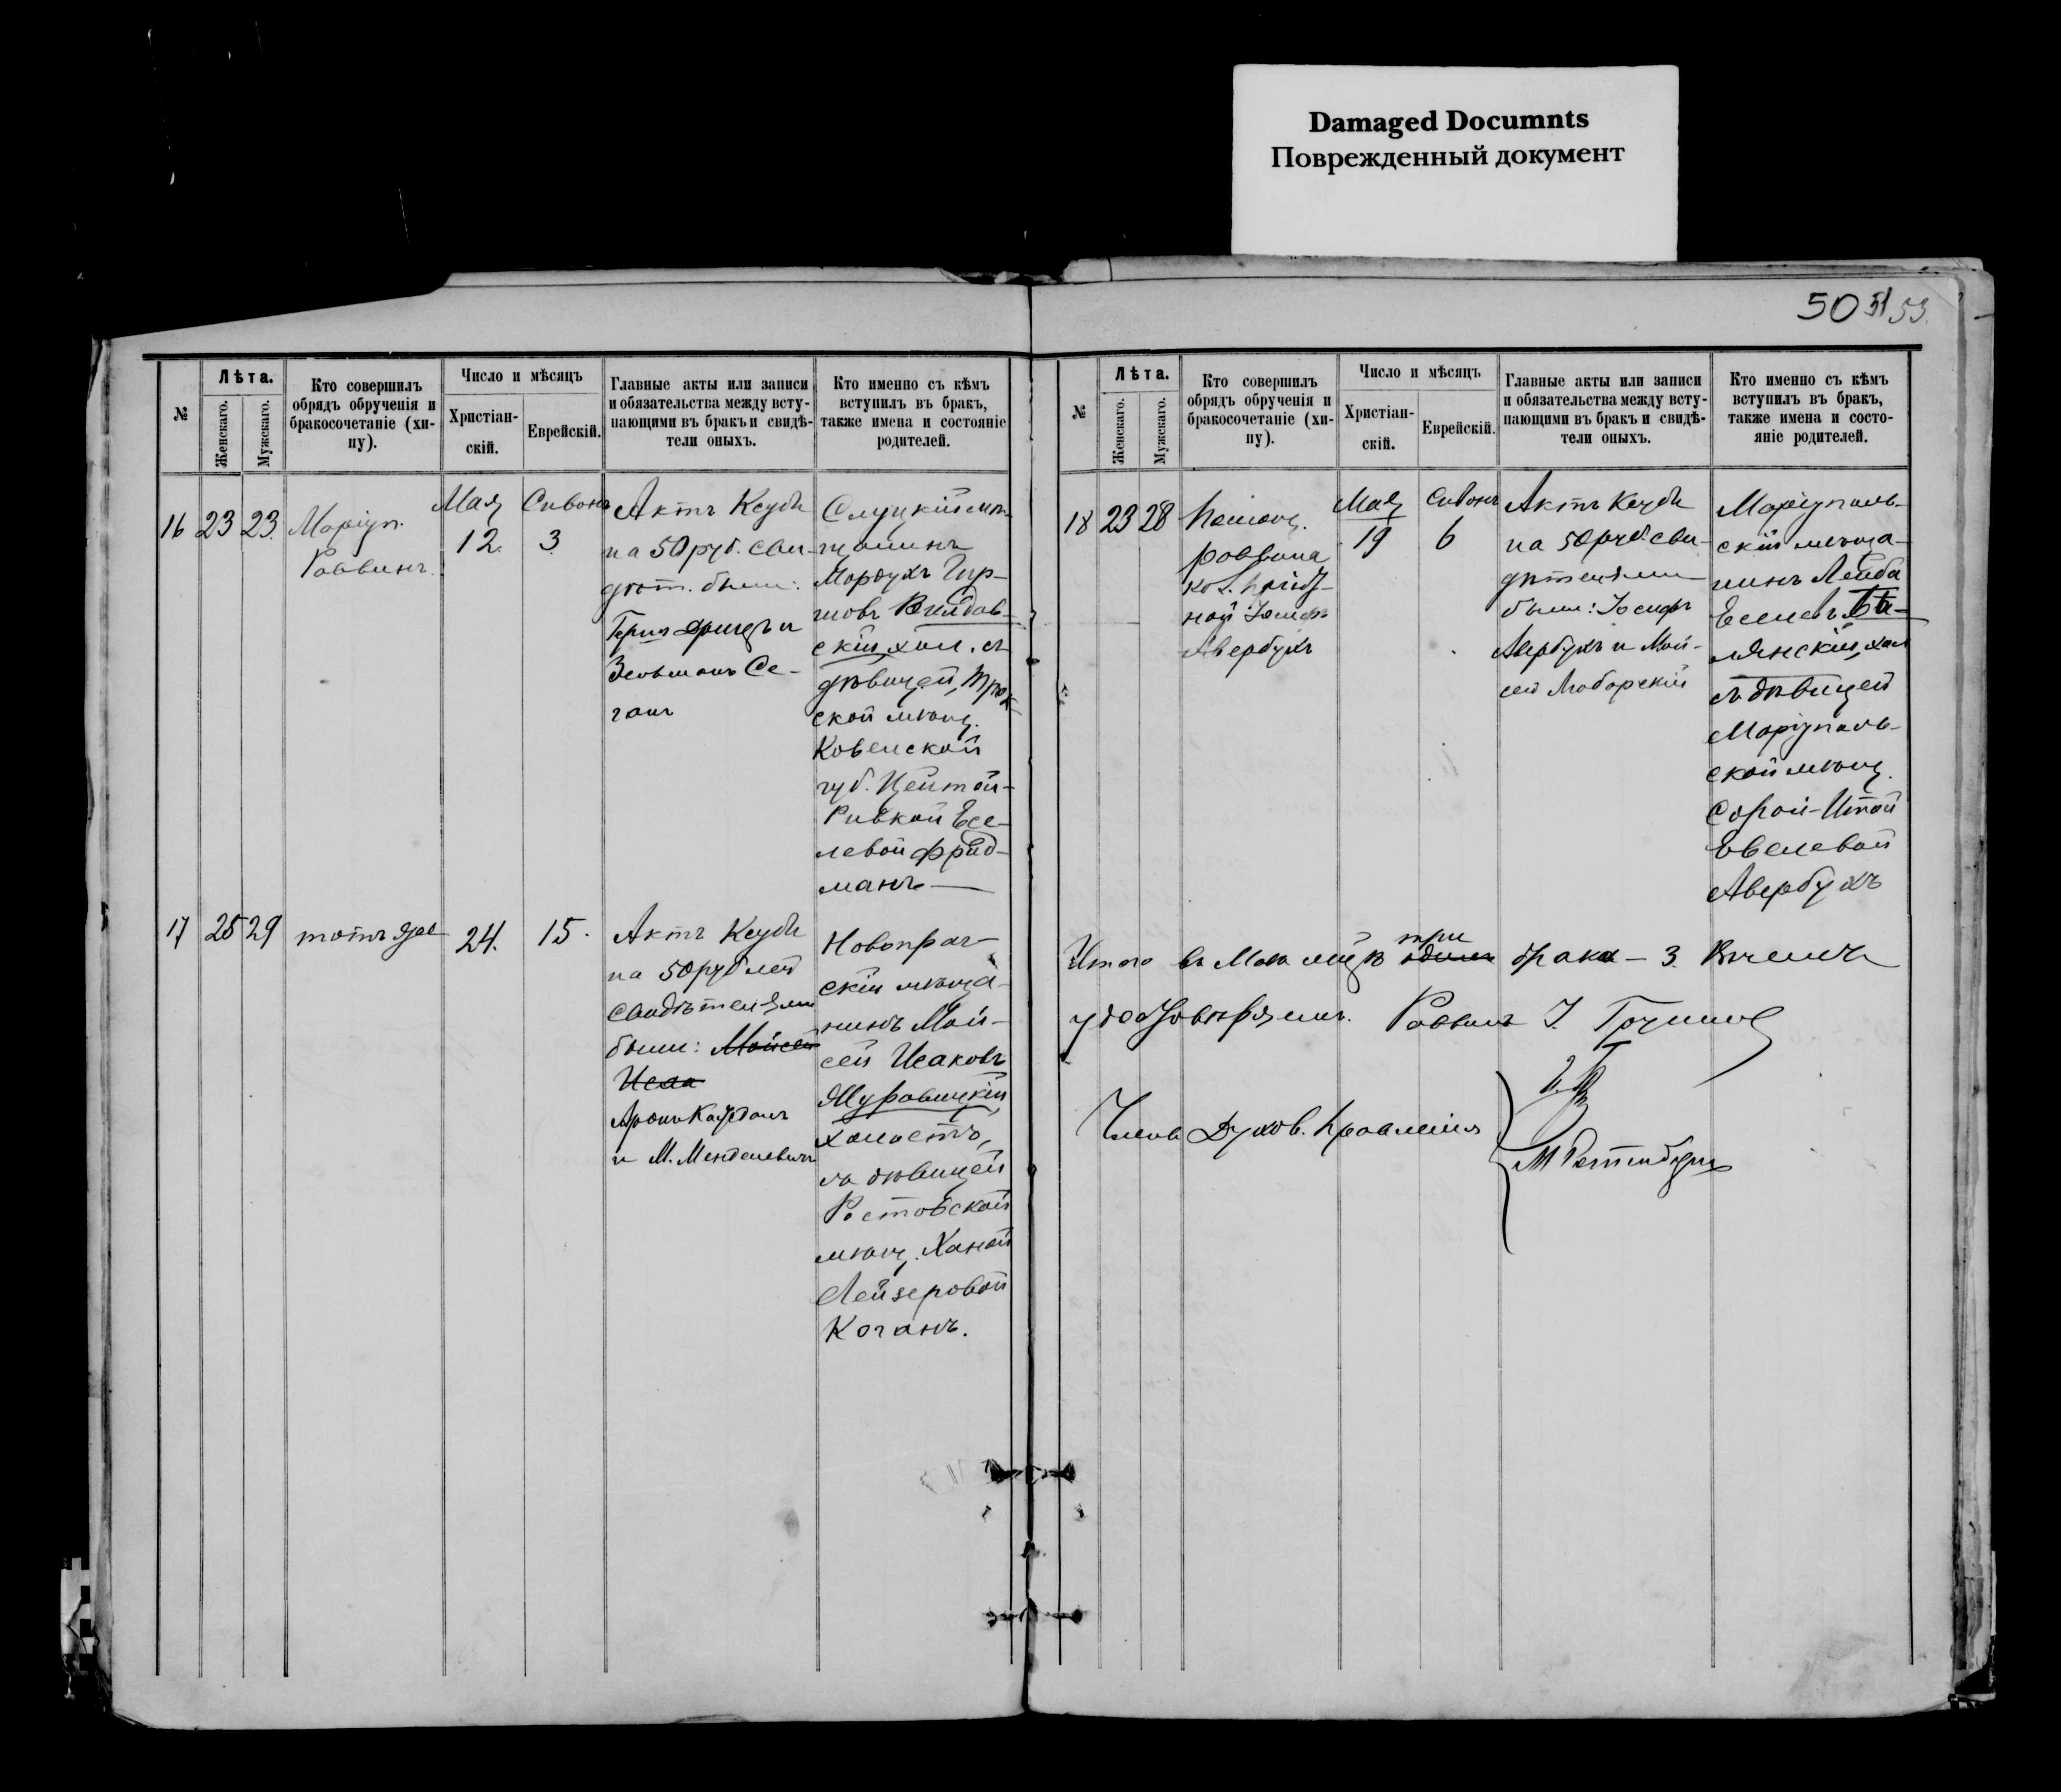 Damaged Documnts
Поврежденный документ
50 51 53.
№
Лѣта.
Женскаго.
Мужскаго.
Кто совершилъ
обрядъ обрученія и
бракосочетаніе (хи-
пу).
Число и мѣсяцъ
Христіан-
скій.
Еврейскій.
Главные акты или записи
и обязательства между всту-
пающими въ бракъ и свидѣ-
тели оныхъ.
Кто именно съ кѣмъ
вступилъ въ бракъ,
также имена и состояніе
родителей.
16
23
23.
Маріуп.
Раввинъ.
Мая
12.
Сивонъ
3
Актъ Ксубы
на 50 руб. сви-
дѣт. были:
Герш
и
Зельманъ Се-
галъ
Слуцкій мѣ-
щанинъ
Мордухъ Гир-
шовъ
скій хол. съ
дѣвицей, Трок-
ской мѣщ.
Ковенской
губ. Цейтой-
Ривкой Есе-
левой Фрид-
манъ
17
25
29
тотъ же
24.
15.
Актъ Ксубы
на 50 рублей
свидѣтелями
были: Мойсей
Исаа
Аронъ
и М. Менделевичъ
скій мѣща-
нинъ Мой-
сей Исаковъ
Муравицкій
холостъ,
съ дѣвицей
Ростовской
мѣщ. Ханой
Лейзеровой
Коганъ.
№
Лѣта.
Женскаго.
Мужскаго.
Кто совершилъ
обрядъ обрученія и
бракосочетаніе (хи-
пу).
Число и мѣсяцъ
Христіан-
скій.
Еврейскій.
Главные акты или записи
и обязательства между всту-
пающими въ бракъ и свидѣ-
тели оныхъ.
Кто именно съ кѣмъ
вступилъ въ бракъ,
также имена и состо-
яніе родителей.
18
23
28
Помощ.
раввина
кол.
ной Іосифъ
Авербухъ
Мая
19
Сивонъ
6
Актъ Ксубы
на 50 руб. сви-
дѣтелями
были: Іосифъ
Авербухъ и Мой-
сей
Маріуполь-
скій мѣща-
нинъ Лейба
Еселевъ Бѣ-
лянскій, хол
съ дѣвицей
Маріуполь-
ской мѣщ.
Сорой-Итой
Евелевой
Авербухъ
Итого въ Маѣ мцѣ три брака - 3. Въ чемъ
удостовѣряемъ. Раввинъ
Члены Духов. Правленія